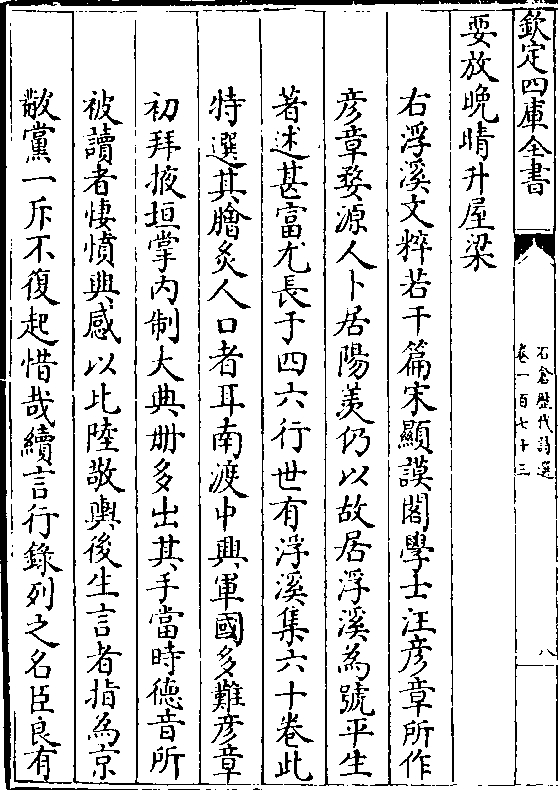 欽定四庫全書
石倉歷代詩選
卷一百七十三
八
要放晚晴升屋梁
右浮溪文粹若干篇宋顯謨閣學士汪彥章所作
彥章婺源人卜居陽羨仍以故居浮溪為號平生
著述甚富尤長于四六行世有浮溪集六十卷此
特選其膾炙人口者耳南渡中興軍國多難彥章
初拜掖垣掌内制大典册多出其手當時德音所
被讀者悽憤興感以比陸敬輿後生言者指為京
黻黨一斥不復起惜哉續言行錄列之名臣良有